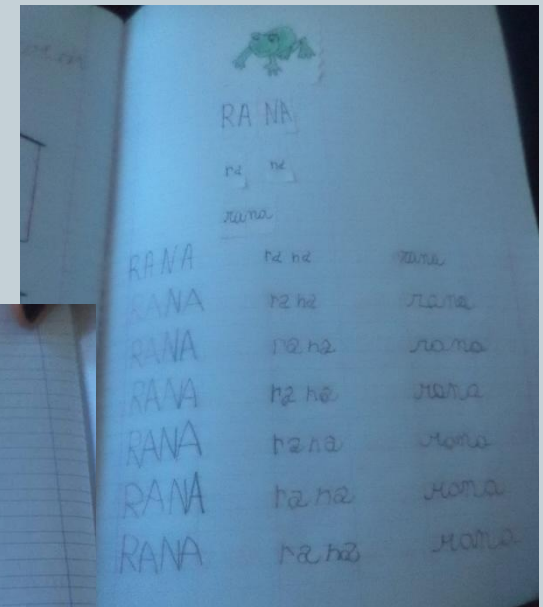 RA NA
ra na
rana
RANA ra na rana
RANA ra na rana
RANA ra na rana
RANA ra na rana
RANA rana rana
RANA ra na rana
RANA ra na rana